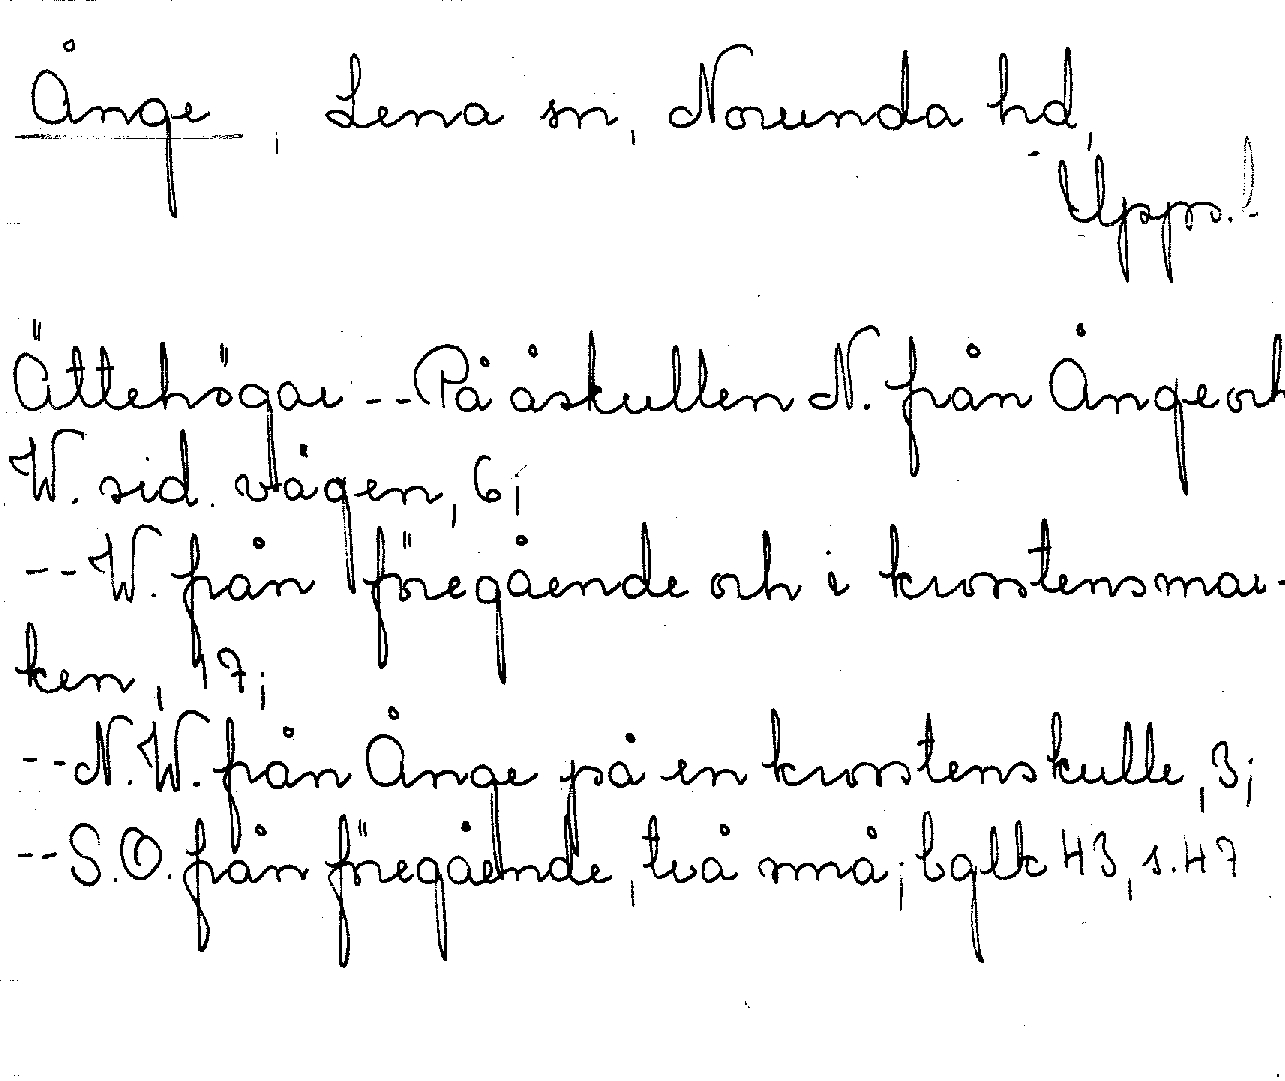 Ånge, Lena sn, Norunda hd,
Upps. l
Ättehögar -- På åskullen N. från Ånge och
W. sid. vägen, 6;
-- W. från föregående och i krosstensmar-
ken, 17;
-- N.W. från Ånge på en krosstenskulle, 3;
-- S.O. från föregående, två små; bglk 43, s. 47